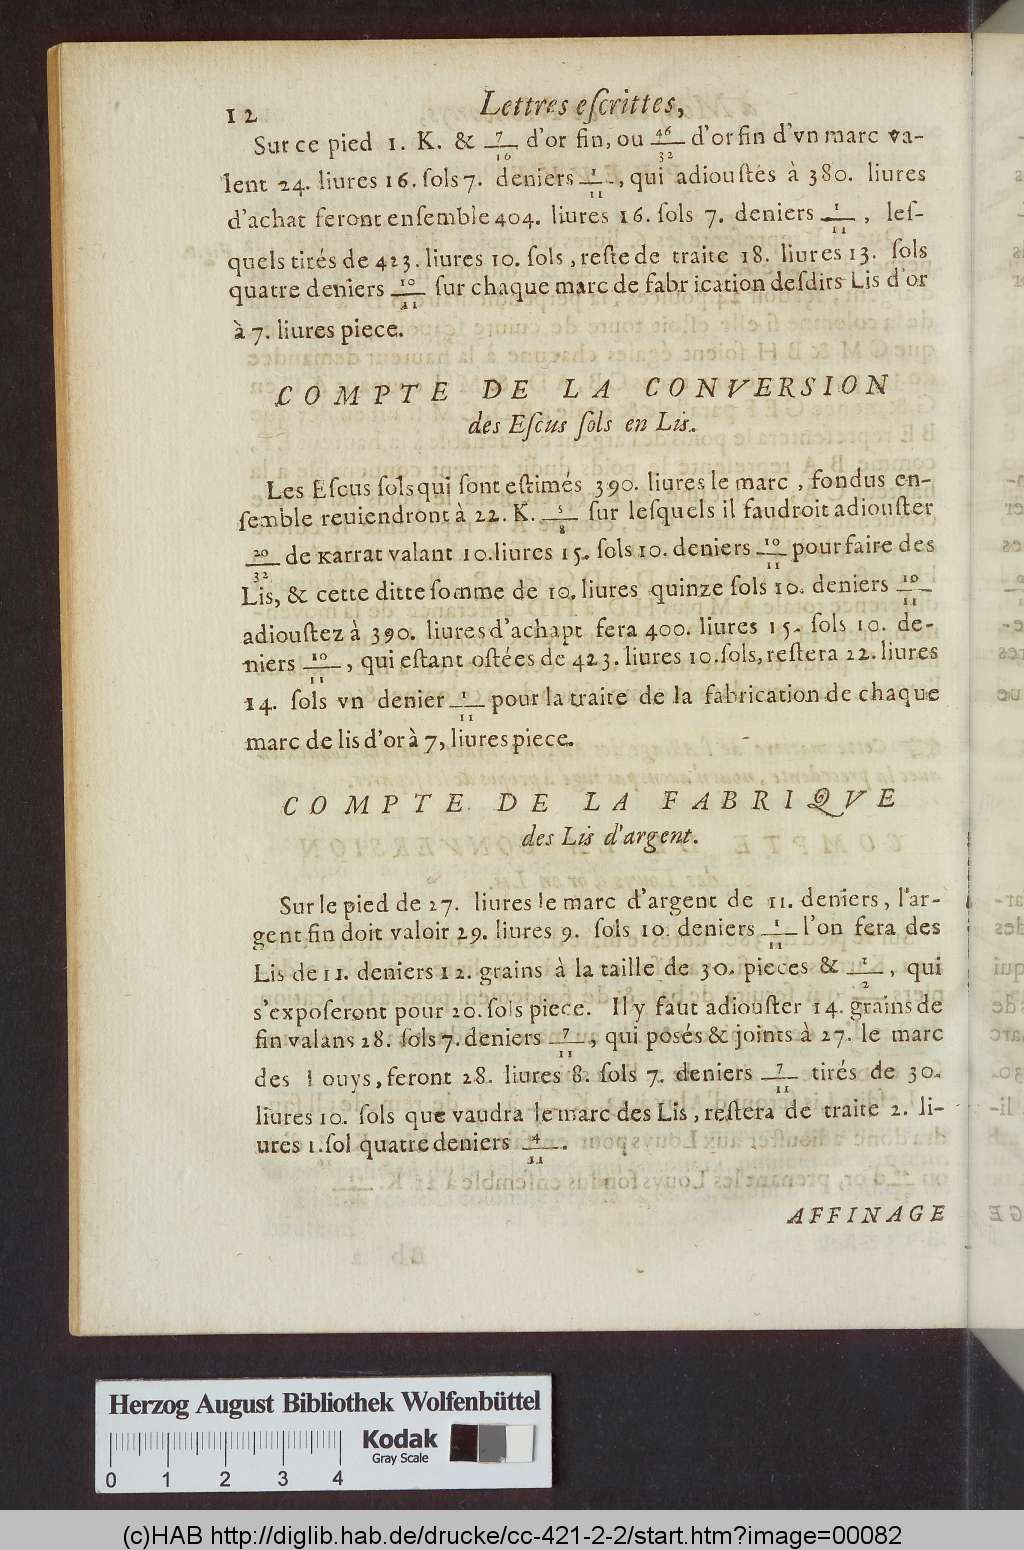 12 Lettres eſcrittes,
Sur ce pied 1. K. & 7/16 d'or fin, ou 46/32 d'or fin d'vn marc va-
lent 24. liures 16. ſols 7. deniers 1/11, qui adiouſtés à 380. liures
d'achat feront enſemble 404. liures 16. ſols 7. deniers 1/11, leſ-
quels tirés de 423. liures 10. ſols, reſte de traite 18. liures 13. ſols
quatre deniers 10/11 ſur chaque marc de fabrication deſdits Lis d'or
à 7. liures piece.
COMPTE DE LA CONVERSION
des Eſcus ſols en Lis.
Les Eſcus ſols qui ſont eſtimés 390. liures le marc, fondus en-
ſemble reuiendront à 22. K. 5/8 ſur leſquels il faudroit adiouſter
20/32 de Karrat valant 10. liures 15. ſols 10. deniers 10/11 pour faire des
Lis, & cette ditte ſomme de 10. liures quinze ſols 10. deniers 10/11
adiouſtez à 390. liures d'achapt fera 400. liures 15. ſols 10. de-
niers 10/11, qui eſtant oſtées de 423. liures 10. ſols, reſtera 22. liures
14. ſols vn denier 1/11 pour la traite de la fabrication de chaque
marc de lis d'or à 7, liures piece.
COMPTE DE LA FABRIQVE
des Lis d'argent.
Sur le pied de 27. liures le marc d'argent de 11. deniers, l'ar-
gent fin doit valoir 29. liures 9. ſols 10. deniers 1/11 l'on fera des
Lis de 11. deniers 12. grains à la taille de 30. pieces & 1/2, qui
s'expoſeront pour 20. ſols piece. Il y faut adiouſter 14. grains de
fin valans 28. ſols 7. deniers 7/11, qui poſés & joints à 27. le marc
des Louys, feront 28. liures 8. ſols 7. deniers 7/11 tirés de 30.
liures 10. ſols que vaudra le marc des Lis, reſtera de traite 2. li-
ures 1. ſol quatre deniers 4/11.
AFFINAGE
Herzog August Bibliothek Wolfenbüttel
Kodak
Gray Scale
0 1 2 3 4
(c)HAB http://diglib.hab.de/drucke/cc-421-2-2/start.htm?image=00082